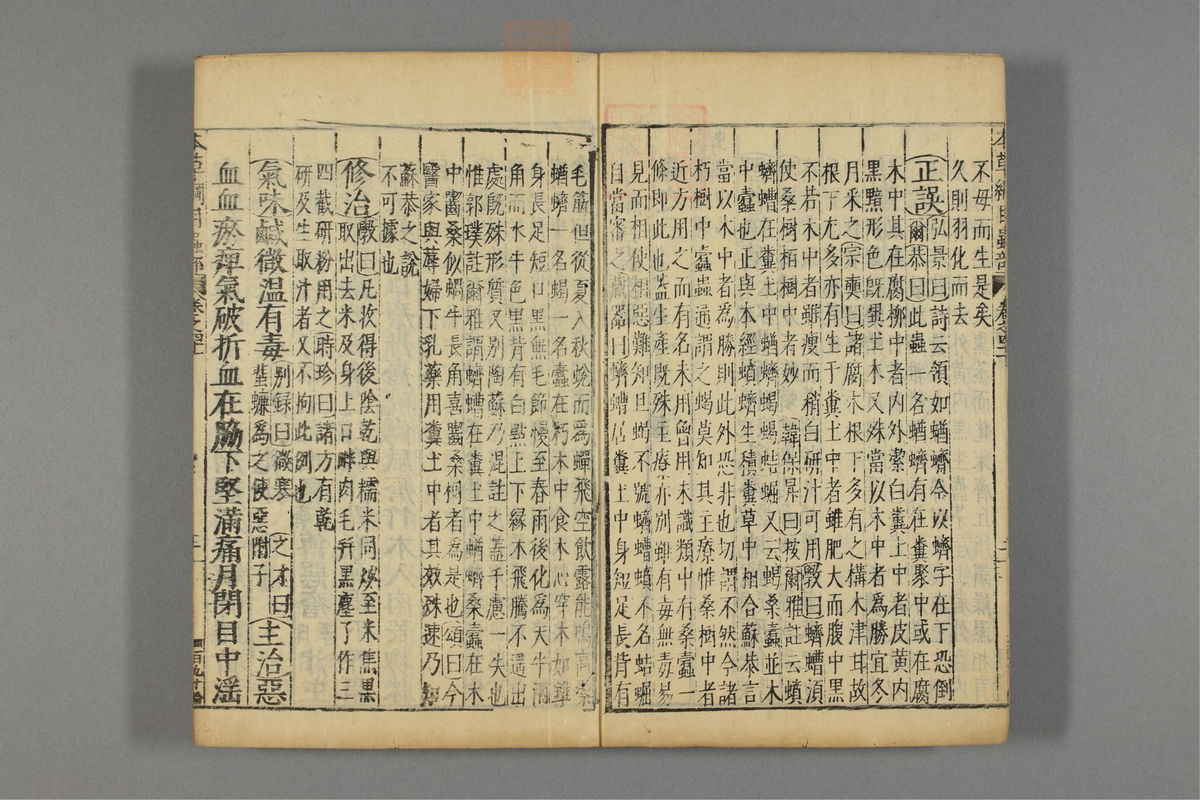 本草綱目蟲部 卷之四十一
不母而生是矣
久則羽化而去
正誤弘景曰詩云領如蝤蠐今以蠐字在下恐倒
爾恭曰此蟲一名蝤蠐有在糞聚中或在腐
木中其在腐柳中者内外潔白糞土中者皮黄内
黑黯形色既異土木又殊當以木中者爲勝宜冬
月采之宗奭曰諸腐木根下多有之構木津甘故
根下尤多亦有生于糞土中者雖肥大而腹中黑
不若木中者雖瘦而稍白研汁可用斆曰蠐螬須
使桑樹栢樹中者妙韓保昇曰按爾雅註云蟦
蠐螬在糞土中蝤蠐蝎蝎蛣𧌑又云蝎桑蠹並木
中蠹也正與本經蟦蠐生積糞草中相合蘇恭言
當以木中者爲勝則此外恐非也切謂不然今諸
朽樹中蠹蟲通謂之蝎莫知其主療惟桑樹中者
近方用之而有名未用曾用未識類中有桑蠹一
條即此也蓋生產既殊主療亦別雖有毒無毒易
見而相使相惡難知且蝎不號蠐螬蟦不名蛣𧌑
自當審之藏器曰蠐螬居糞土中身短足長背有
毛筋但從夏入秋蛻而爲蟬飛空飲露能鳴高潔
蝤蠐一名蝎一名蠹在朽木中食木心穿木如錐
身長足短口黑無毛節慢至春雨後化爲天牛兩
角而水牛色黑背有白點上下緣木飛騰不遥出
處既殊形質又別陶蘇乃混註之蓋千慮一失也
惟郭璞註爾雅謂蠐螬在糞土中蝤蠐桑蠹在木
中齧桑似蝸牛長角喜齧桑樹者爲是也頌曰今
醫家與蓐婦下乳藥用糞土中者其效殊速乃知
蘇恭之說
不可據也
修治斆曰凡收得後陰乾與糯米同炒至米焦黑
取出去米及身上口畔肉毛并黑塵了作三
四截研粉用之時珍曰諸方有乾
研及生取汁者又不拘此例也
氣味鹹微温有毒别録曰微寒之才曰
蜚蠊爲之使惡附子主治惡
血血瘀痺氣破折血在脇下堅滿痛月閉目中淫
本草綱目蟲部 卷之四十一